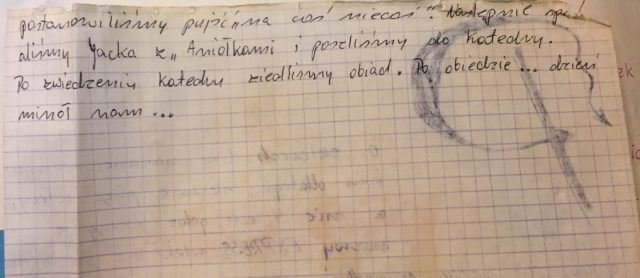 postanowiliśmy pujść „na coś niecoś". Następnie
aliśmy Jacka z „Aniołkami i poszliśmy do katedry.
Po zwiedzeniu katedry ziedliśmy obiad. Po obiedzie... dzień
minoł nam...